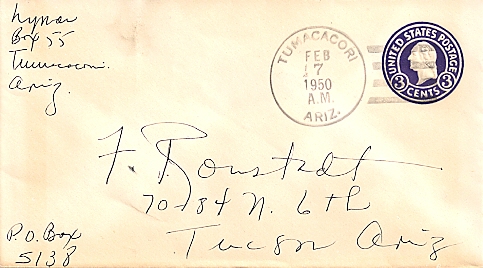 Lyman
Box 55
Tumacacori.
Ariz.
TUMACACORI
FEB
7
1950
A.M.
ARIZ.
UNITED STATES POSTAGE
3 CENTS 3
F. Ronstadt
70184 N. 6th
Tucson Ariz
P.O. Box
5138